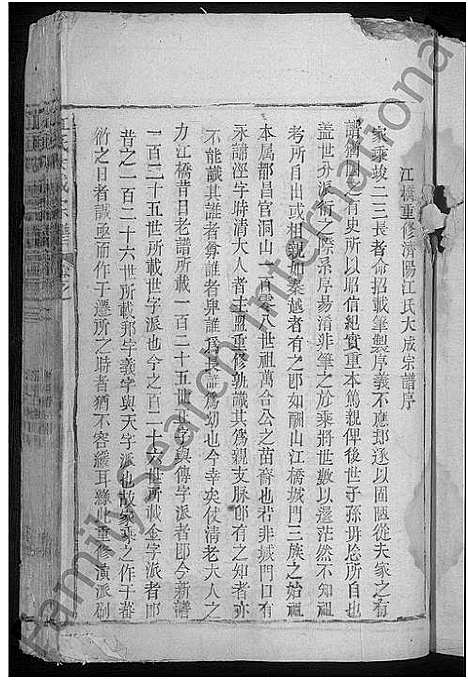 江橋重修濟陽江氏大成宗譜序
家乘竣二三長者命招載筆製序義不應却遂以固陋從夫家之有
譜猶國有史所以昭信紀實重本篤親俾後世子孫毋忘所自也
蓋世分派衍之際系序易淆非筆之於乘將世數以遷茫然不知祖
考所自出或相親如秦越者有之即如洞山江橋城門三族之始祖
本属都昌官洞山一百零八世祖萬合公之苗裔也若非城門口有
永譜淫字時清大人者主盟重修孰識其為親支脉即有之知者亦
不能識其誰者尊誰者卑誰為長誰為幼也今幸灾仗清老大人之
力江橋昔日老譜所載一百二十五世字與傳字派者即今新譜
一百二十五世所載世字派也今之一百二十六世所載金字派者即
昔之一百二十六世所載邦字義字與天字派也故家乘之作于蕃
衍之日者誠亟而作于遷所之時者猶不容緩耳雖重修演派刻
江氏大成宗譜
Family Search International